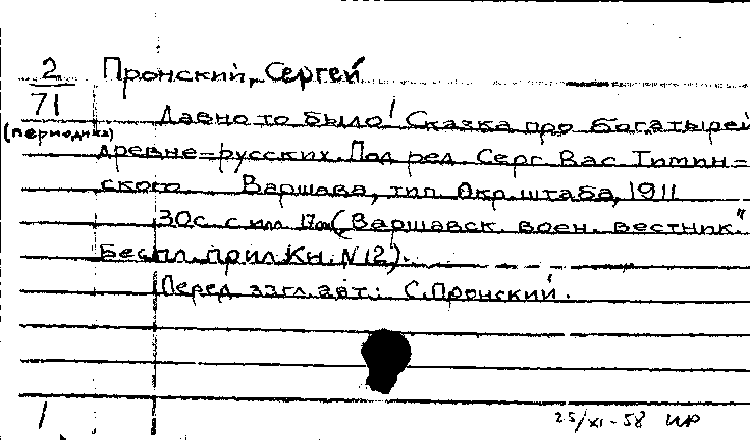 2 Пронский, Сергей
71
(периодика)
Давно то было! Сказка про богатырей
древне=русских. Под ред. Серг. Вас. Тимин=
ского. Варшава, тип. Окр. штаба, 1911
30с. с илл. 17см. (Варшавск. воен. вестник."
Беспл. прил. Кн. N 12).
Перед загл. авт.: С. Пронский.
1
25/XI-58